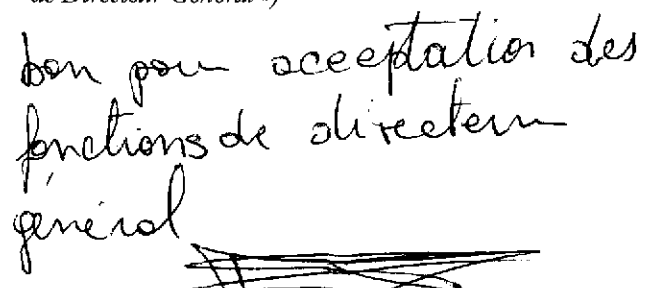 de Directeur Général »)
bon pour acceptation des
fonctions de directeur
général